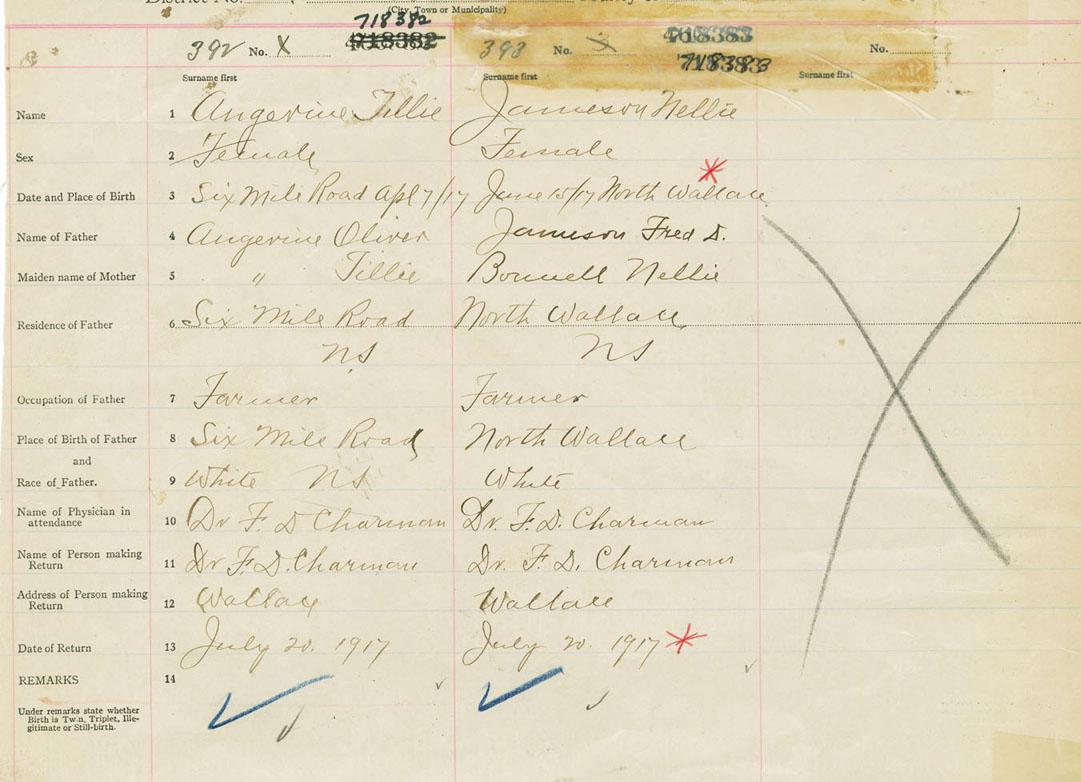 District No.
(City, Town or Municipality)
718382
392 No. X 718382
393 No. X 718383
718383
No.
Surname first Surname first Surname first
Name 1 Angevine Tillie Jameson Nellie
Sex 2 Female Female
Date and Place of Birth 3 Six Mile Road Apl 7/17 June 15/17 North Wallace
Name of Father 4 Angevine Oliver Jameson Fred D.
Maiden name of Mother 5 " Tillie Bonnell Nellie
Residence of Father 6 Six Mile Road North Wallace
NS NS
Occupation of Father 7 Farmer Farmer
Place of Birth of Father 8 Six Mile Road North Wallace
and
Race of Father. 9 White NS White
Name of Physician in attendance 10 Dr F. D Charman Dr. F. D. Charman
Name of Person making Return 11 Dr F. D. Charman Dr. F. D. Charman
Address of Person making Return 12 Wallace Wallace
Date of Return 13 July 20. 1917 July 20. 1917
REMARKS 14
Under remarks state whether
Birth is Twin, Triplet, Ille-
gitimate or Still-birth.